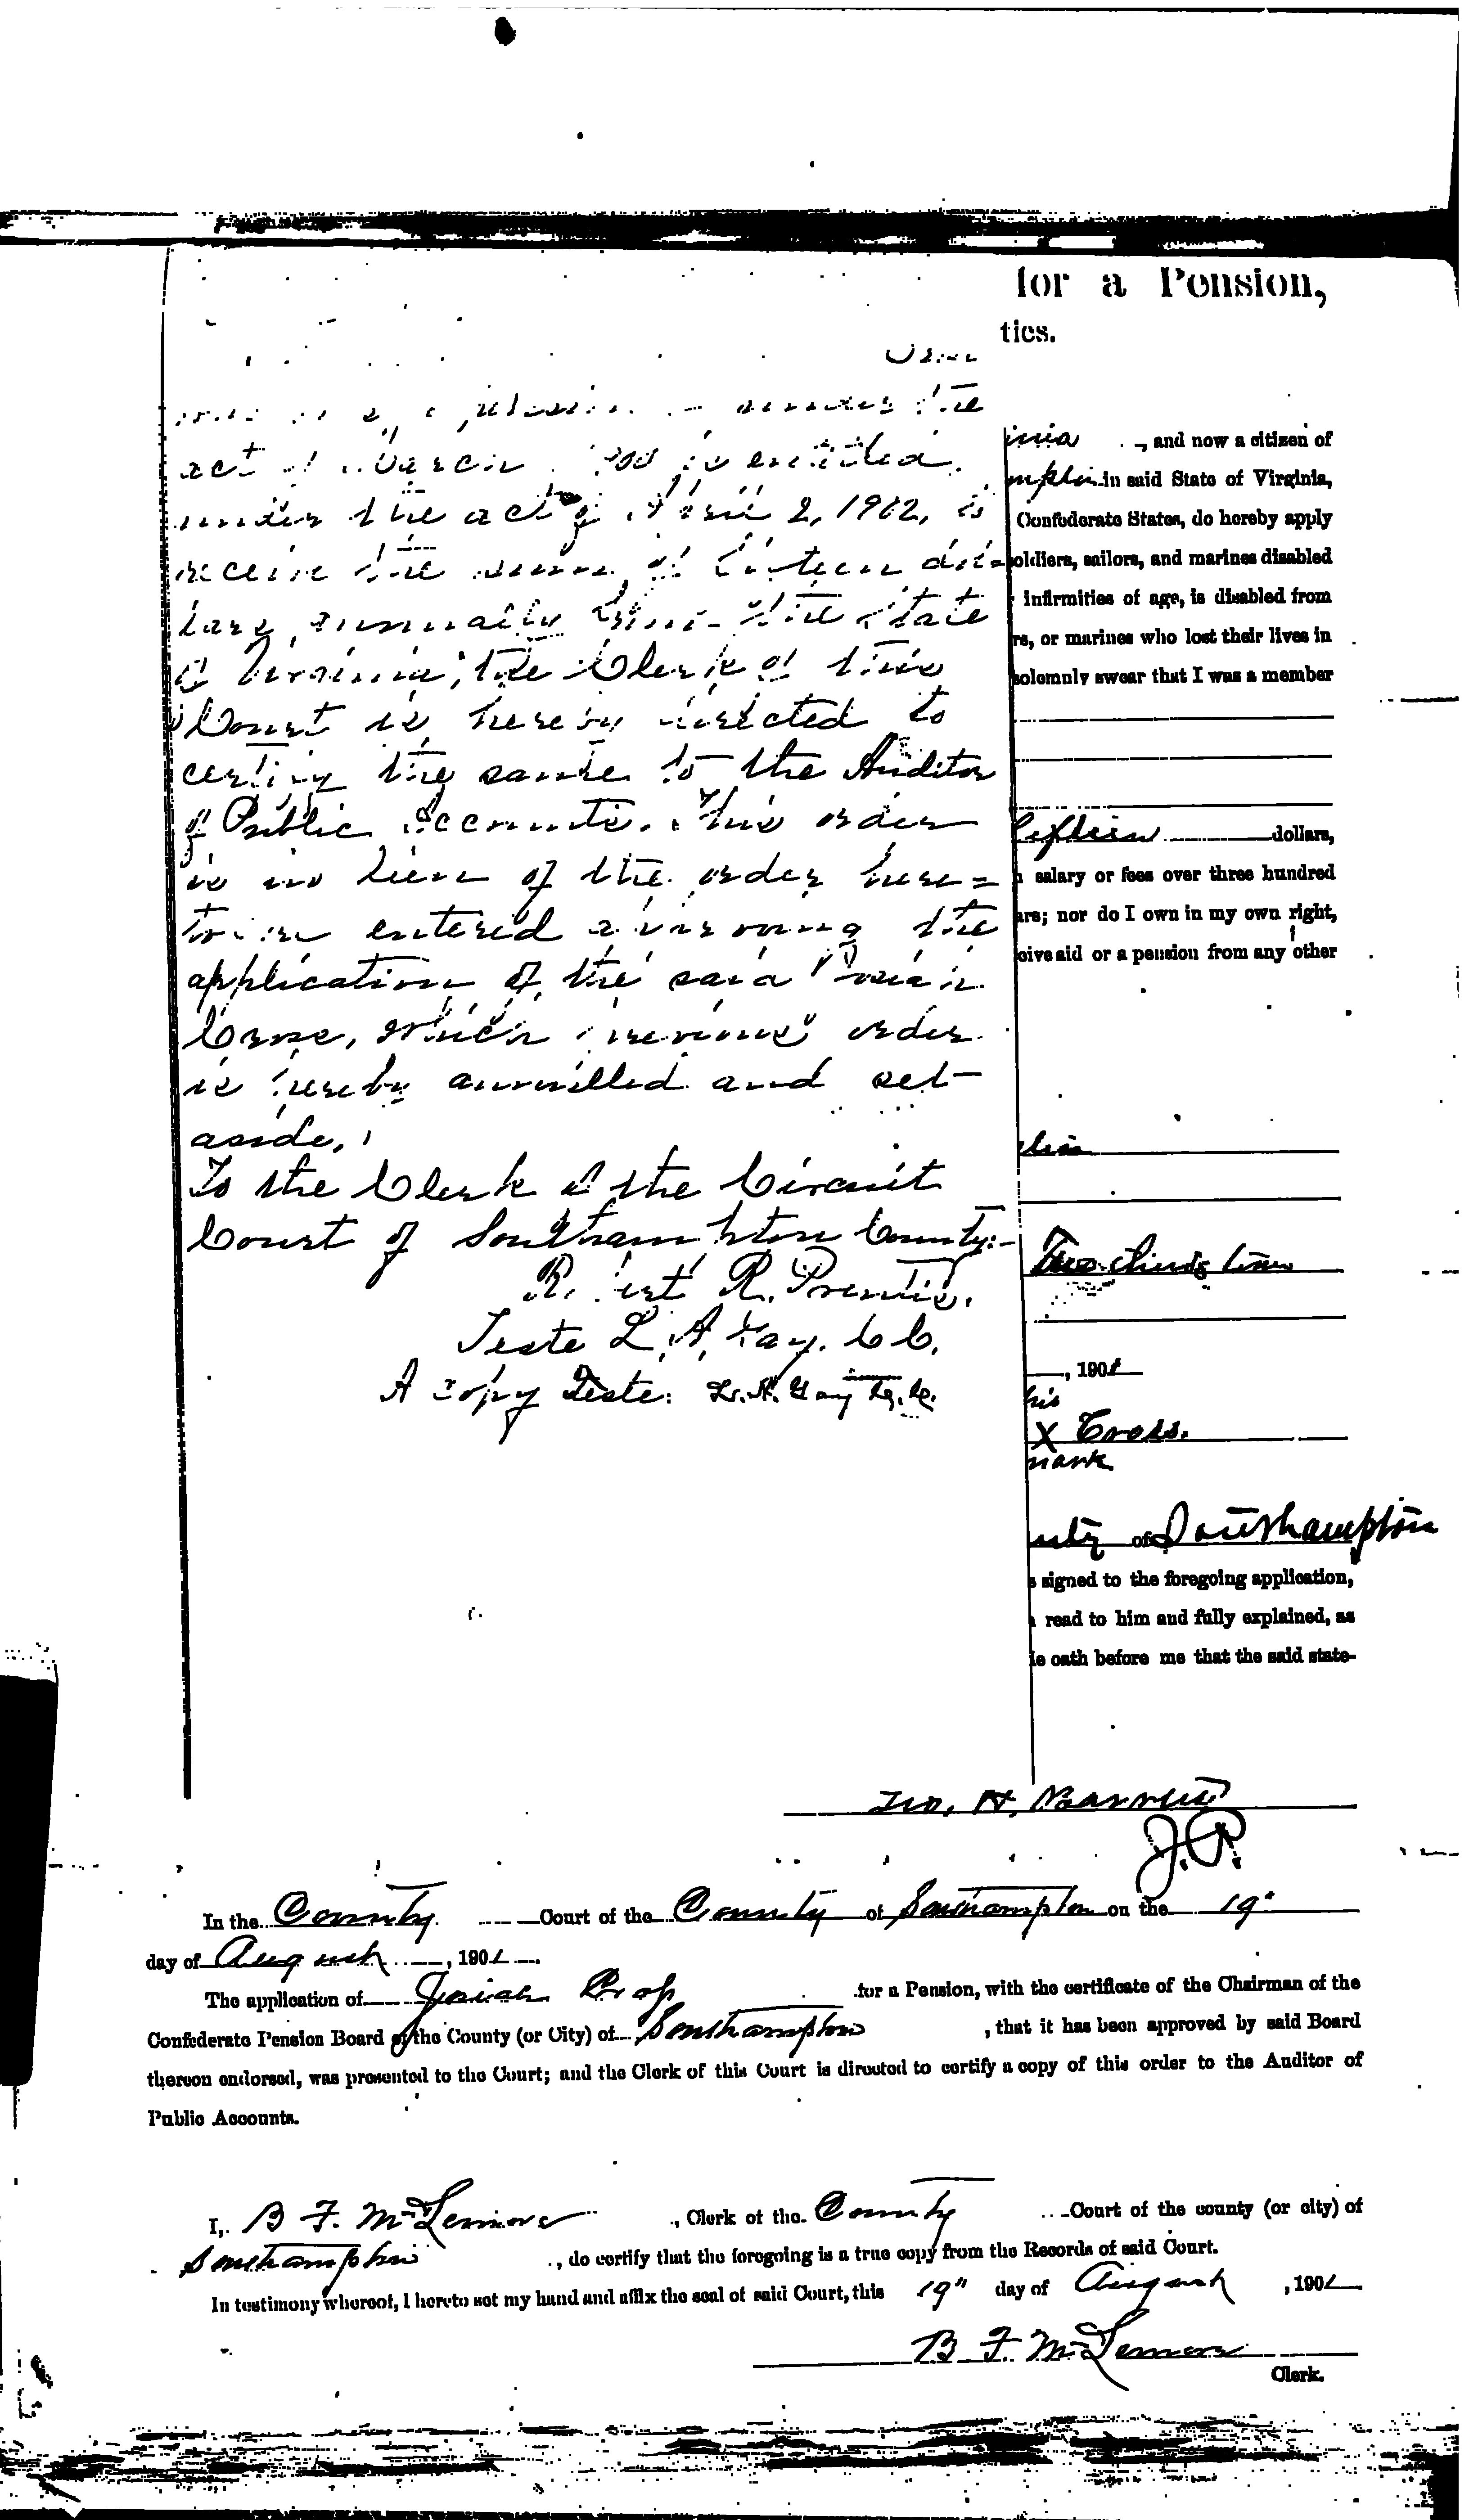 for a Pension,
ties.
the
act
under the act of April 2, 1902, is
receive the sum of fifteen dol=
lars annually from the State
of Virginia; the Clerk of this
Court is hereby directed to
certify the same to the Auditor
of Public Accounts. This order
is in lieu of the order here=
tofore entered approving the
application of the said Josiah
Cross, which previous order
is hereby annulled and set
aside.
To the Clerk of the Circuit
Court of Southampton County:-
R. Prentis.
Teste L. A. Gay. C C.
A copy Teste: L. A. Gay
inia , and now a citizen of
mpton in said State of Virginia,
Confederate States, do hereby apply
oldiers, sailors, and marines disabled
infirmities of age, is disabled from
rs, or marines who lost their lives in
solemnly swear that I was a member
fifteen dollars,
salary or fees over three hundred
ars; nor do I own in my own right,
ceive aid or a pension from any other
Two thirds
, 190
his
X Cross.
mark
nty of Southampton
s signed to the foregoing application,
read to him and fully explained, as
le oath before me that the said state-
Jno. H. Barrett
J.P.
In the County Court of the County of Southampton on the 19"
day of August, 190
The application of Josiah Cross for a Pension, with the certificate of the Chairman of the
Confederate Pension Board of the County (or City) of Southampton, that it has been approved by said Board
thereon endorsed, was presented to the Court; and the Clerk of this Court is directed to certify a copy of this order to the Auditor of
Public Accounts.
I, B F. McLemore, Clerk of the County Court of the county (or city) of
Southampton, do certify that the foregoing is a true copy from the Records of said Court.
In testimony whereof, I hereto set my hand and affix the seal of said Court, this 19" day of August, 190
B F. McLemore
Clerk.